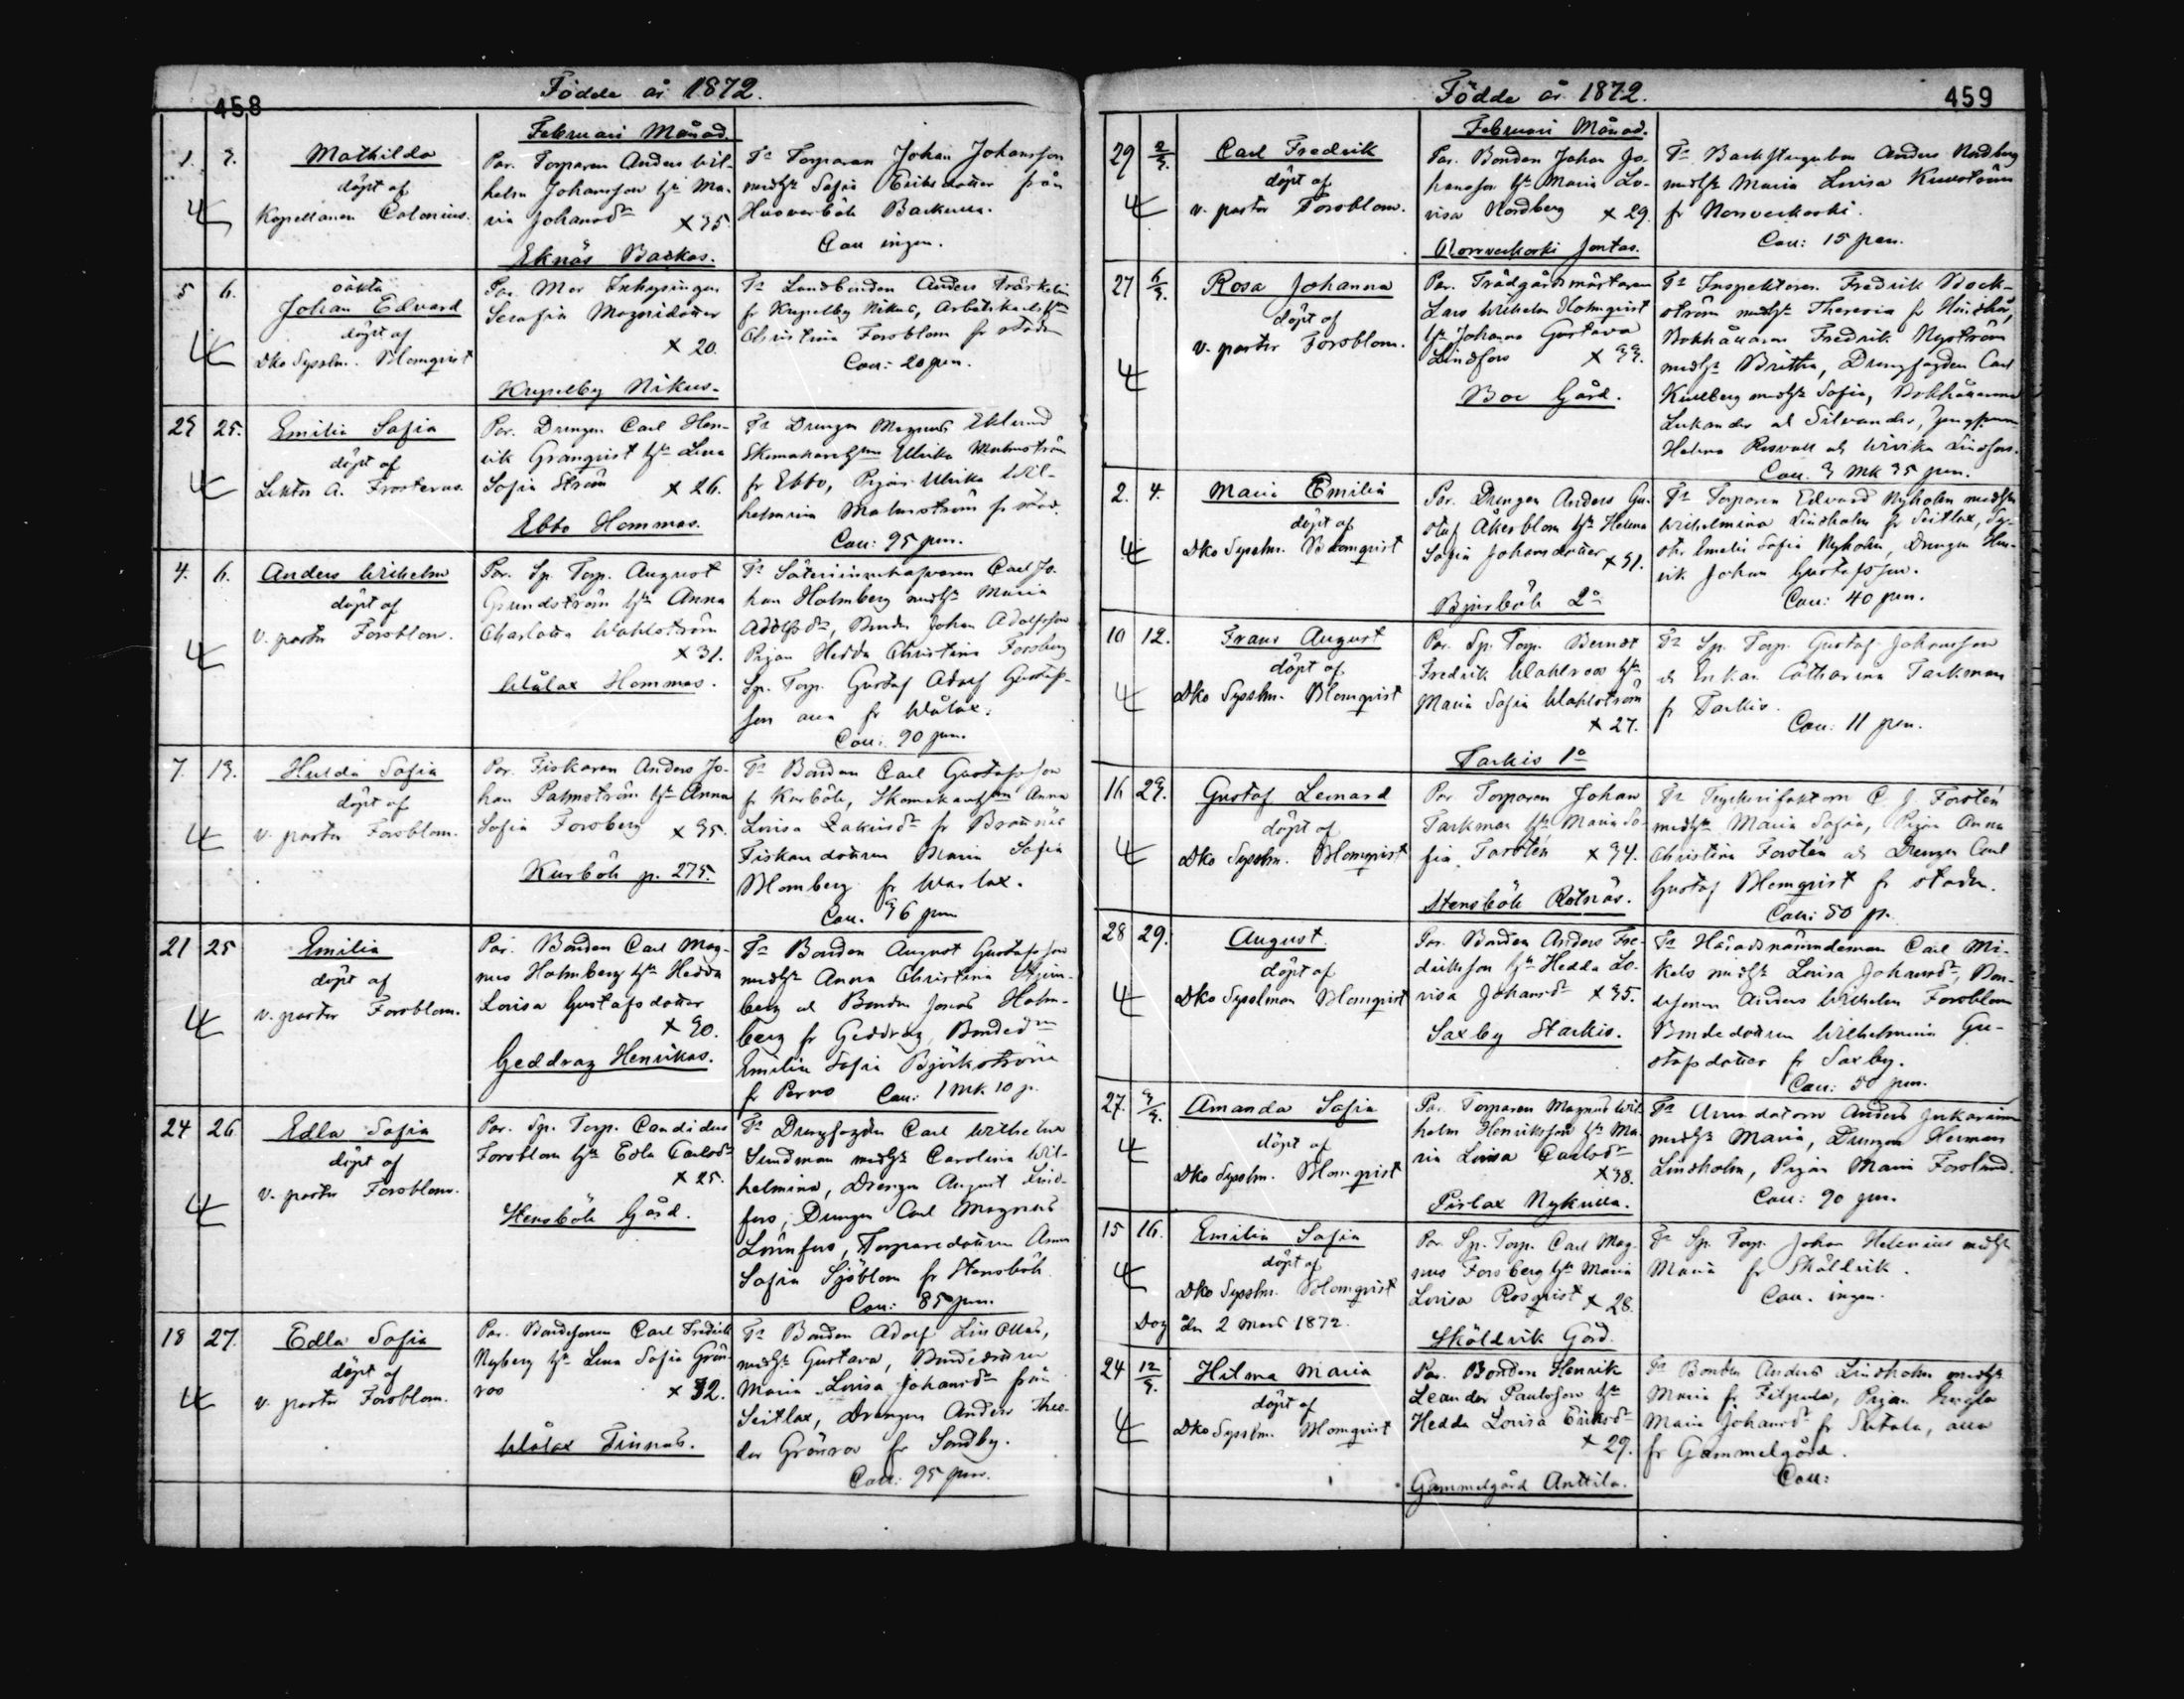 458
Födde år 1872.
Februari Månad.
1. 7. Mathilda
döpt af
Kapellanen Colonius.
Par. Torparen Anders Wil-
helm Johansson hu Ma-
ria Johansdr x 35.
Eknäs Backas.
Fr Torparen Johan Johansson
med hu Sofia Eriksdotter från
Backulla.
Coll ingen.
5 6. oäkta
Johan Edvard
döpt af
Dko Sysslm. Blomqvist
Par. Mor Inhysingen
Serafia Magnidotter
x 20.
Krepelby Nikus.
Fr Landbonden Anders Träskelin
fr Krepelby Nikus, Arbetskarlshu
Christina Forsblom fr staden
Coll: 20 pen.
23 25. Emilia Sofia
döpt af
Lektor A. Frosterus.
Par. Drengen Carl Hen-
rik Granqvist hu Lena
Sofia Ström x 26.
Ebbo Hommas.
Fr Drengen Magnus Eklund
Skomakarehun Ulrika Malmström
fr Ebbo, Pigan Ulrika Wil-
helmina Malmström fr stad.
Coll: 95 pen.
4. 6. Anders Wilhelm
döpt af
v. pastor Forsblom.
Par. Sp. Torp. August
Grundström hu Anna
Charlotta Wahlström
x 31.
Wålax Hommas.
Fr Säteriinnehafvaren Carl Jo-
han Holmberg med hu Maria
Adolfsdr, Bonden Johan Adolfsson
Pigan Hedda Christina Forsberg
Sp. Torp. Gustaf Adolf Gustafs-
son alla fr Wålax.
Coll: 90 pen.
7. 13. Hulda Sofia
döpt af
v. pastor Forsblom.
Par. Fiskaren Anders Jo-
han Palmström hu Anna
Sofia Forsberg x 35.
Kurböle p. 275.
Fr Bonden Carl Gustafsson
fr Kurböle, Skomakarehun Anna
Lovisa Zakrisdr fr
Fiskaredottren Maria Sofia
Blomberg fr Warlax.
Coll. 36 pen
21 25 Emilia
döpt af
v. pastor Forsblom.
Par. Bonden Carl Mag-
nus Holmberg hu Hedda
Lovisa Gustafsdotter
x 30.
Geddrag Henrikas.
Fr Bonden August Gustafsson
med hu Anna Christina Stjern-
berg och Bonden Jonas Holm-
berg fr Geddrag, Bondedrn
Emilia Sofia Björkström
fr Perno Coll: 1 mk 10 p.
24 26 Edla Sofia
döpt af
v. pastor Forsblom.
Par. Sp. Torp. Candidus
Forsblom hu Edla Carlsdr
x 25.
Stensböle Gård.
Fr Drengfogden Carl Wilhelm
Sundman med hu Carolina Wil-
helmina, Drengen August Lind-
fors, Drengen Carl Magnus
Lönnfors, Torparedottren Anna
Sofia Sjöblom fr Stensböle
Coll: 85 pen.
18 27. Edla Sofia
döpt af
v. pastor Forsblom.
Par. Bondesonen Carl Fredrik
Nyberg hu Lena Sofia Grön-
roo x 32.
Wålax Finnas.
Fr Bonden Adolf
med hu Gustava, Bondedottren
Maria Lovisa Johansdr från
Seitlax, Drengen Anders Theo-
dor Grönroo fr Sondby.
Coll: 95 pen.
Födde år 1872.
459
Februari Månad.
29 2/3. Carl Fredrik
döpt af
v. pastor Forsblom.
Par. Bonden Johan Jo-
hansson hu Maria Lo-
visa Nordberg x 29.
Norrveckoski Jontas.
Fr Backstugubon Anders Nordberg
med hu Maria Lovisa
fr Norrveckoski.
Coll: 15 pen.
27 6/3. Rosa Johanna
döpt af
v. pastor Forsblom.
Par. Trädgårdsmästaren
Lars Wilhelm Holmqvist
hu Johanna Gustava
Lindfors x 33.
Boe Gård.
Fr Inspektoren Fredrik Bock-
ström med hu Theresia fr
Bokhållaren Fredrik Nyström
med hu Britha, Drengfogden Carl
Kullberg med hu Sofia, Bokhållarne
Lukander och Silvander, Jungfrurna
Helena och Wivika Lindfors.
Coll. 3 mk 35 pen.
2. 4. Maria Emilia
döpt af
Dko Sysslm. Blomqvist
Par. Drengen Anders Gu-
staf Åkerblom hu Helena
Sofia Johansdotter x 31.
Bjurböle 2o
Fr Torparen Edvard Nyholm med hu
Wilhelmina Lindholm fr Seitlax, Sy-
ster Emelie Sofia Nyholm, Drengen Hen-
rik Johan Gustafsson.
Coll: 40 pen.
10 12. Frans August
döpt af
Dko Sysslm. Blomqvist
Par. Sp. Torp. Berndt
Fredrik Wahlroos hu
Maria Sofia Wahlström
x 27.
Tarkis 1o
Fr Sp. Torp. Gustaf Johansson
och Enkan Catharina Tarkman
fr Tarkis.
Coll: 11 pen.
16 23. Gustaf Leonard
döpt af
Dko Sysslm. Blomqvist
Par Torparen Johan
Tarkman hu Maria So-
fia Forstén x 34.
Stensböle Rotnäs.
Fr Tryckerifaktorn C. J. Forstén
med hu Maria Sofia, Pigan Anna
Christina Forstén och Drengen Carl
Gustaf Blomqvist fr staden.
Coll: 50 p.
28 29. August
döpt af
Dko Sysslman Blomqvist
Par. Bonden Anders Fre-
driksson hu Hedda Lo-
visa Johansdr x 35.
Saxby Starkis.
Fr Häradsnämndeman Carl Mi-
kels med hu Lovisa Johansdr, Bon-
desonen Anders Wilhelm Forsblom
Bondedottren Wilhelmina Gu-
stafsdotter fr Saxby.
Coll: 50 pen.
27. 3/3. Amanda Sofia
döpt af
Dko Sysslm. Blomqvist
Par. Torparen Magnus Wil-
helm Henriksson hu Ma-
ria Lovisa Carlsdr
x 38.
Pirlax Nykulla.
Fr Anders
med hu Maria, Drengen Herman
Lindholm, Pigan Maria Forslund.
Coll: 90 pen.
15 16. Emilia Sofia
döpt af
Dko Sysslm. Blomqvist
Dog den 2 Mars 1872.
Par. Sp. Torp. Carl Mag-
nus Forsberg hu Maria
Lovisa Rosqvist x 28.
Sköldvik Gård.
Fr Sp. Torp. Johan Helenius med hu
Maria fr Sköldvik.
Coll. ingen.
24 12/3. Hilma Maria
döpt af
Dko Sysslm. Blomqvist
Par. Bonden Henrik
Leander Paulsson hu
Hedda Lovisa Eriksdr
x 29.
Gammelgård Anttila.
Fr Bonden Anders Lindholm med hu
Maria fr Filpula, Pigan
Maria Johansdr fr Sutala, alla
fr Gammelgård.
Coll: